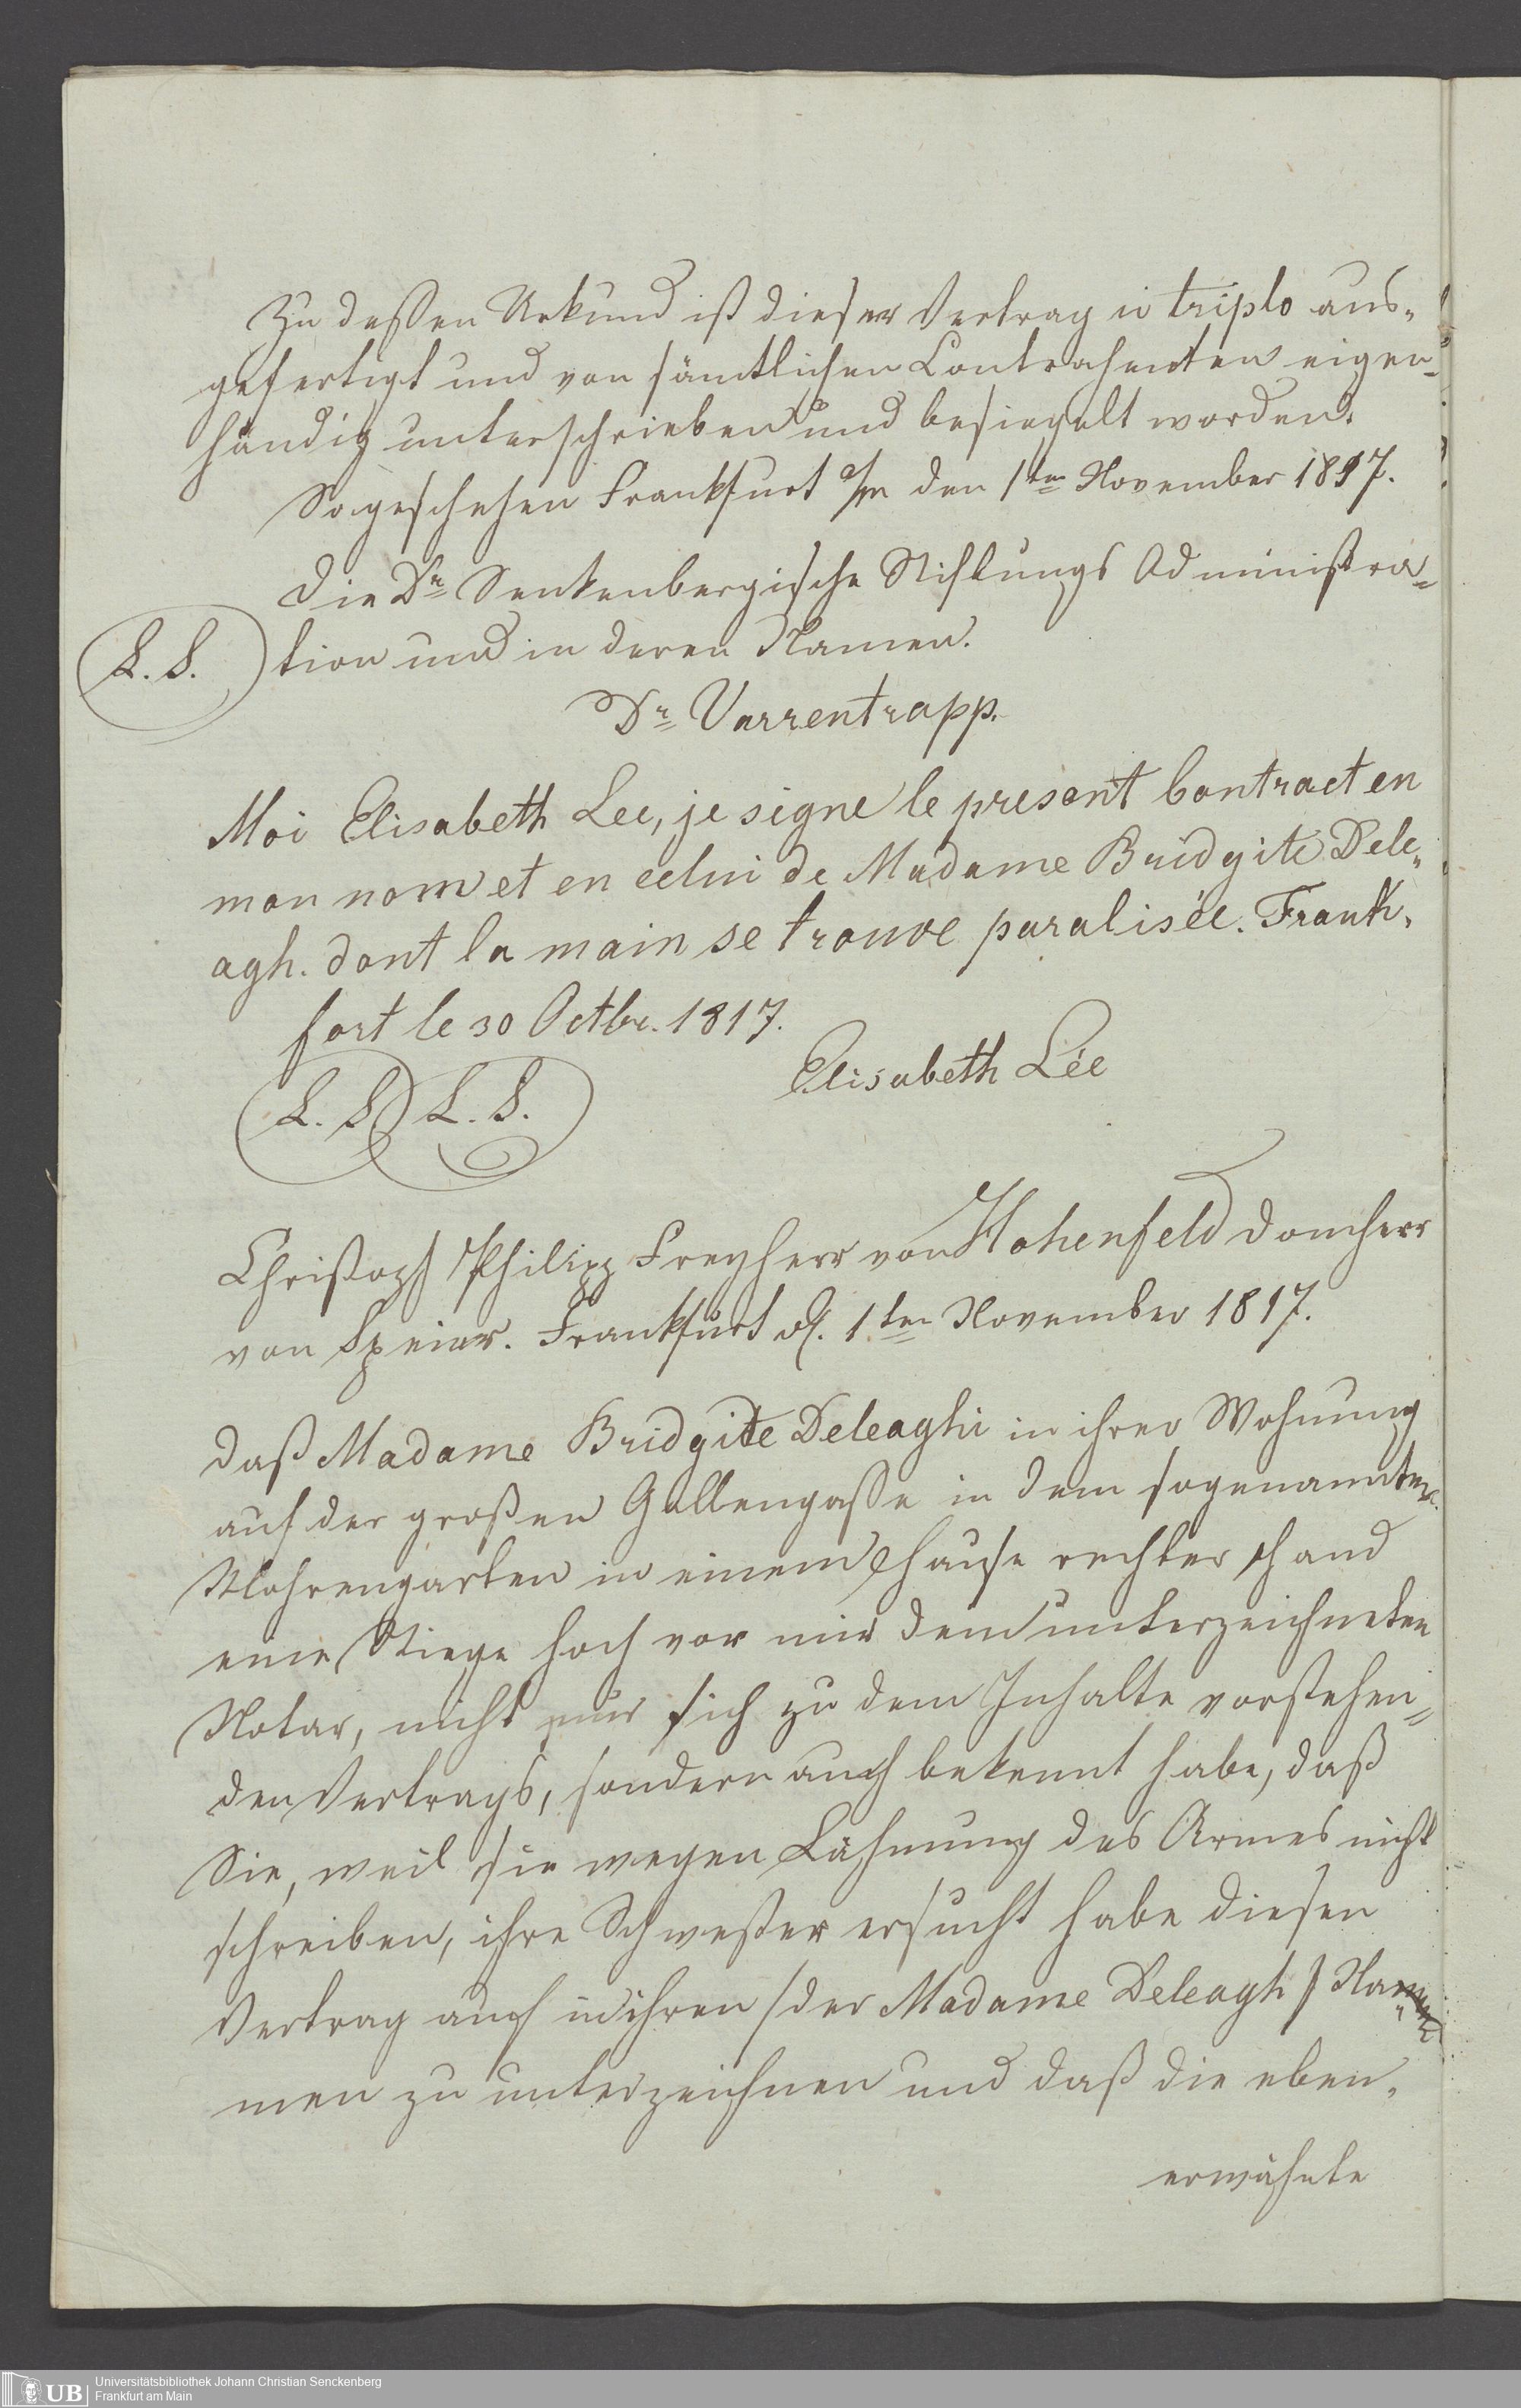 Zu dessen Urkund ist dieser Vertrag in triplo aus-
gefertigt und von sämtlichen Contrahenten eigen-
händig unterschrieben und besiegelt worden.
So geschehen Frankfurt a/m den 1ten November 1817.
Die Dr. Senkenbergische Stiftungs Administra-
L. S. tion und in deren Namen.
Dr. Varrentrapp.
Moi Elisabeth Lee, je signe le present Contract en
mon nom et en celui de Madame Bridgite Dele-
agh. dont la main se trouve paralisée. Frank-
fort le 30 Octbr. 1817.
Elisabeth Lée
L. S. L. S.
Christoph Philipp Freyherr von Hohenfeld Domherr
von Speier. Frankfurt d. 1ten November 1817.
Daß Madame Bridgite Deleaghi in ihrer Wohnung
auf der großen Gallengasse in dem sogenannten
Mohrengarten in einem Hause rechter Hand
eine Stiege hoch vor mir dem unterzeichneten
Notar, nicht nur sich zu dem Inhalte vorstehen-
den Vertrags, sondern auch bekennt habe, daß
Sie, weil sie wegen Lähmung des Armes nicht
schreiben, ihre Schwester ersucht habe diesen
Vertrag auch in ihren /der Madame Deleagh/ Na-
men zu unterzeichnen und daß die eben-
erwähnte
UB Universitätsbibliothek Johann Christian Senckenberg
Frankfurt am Main